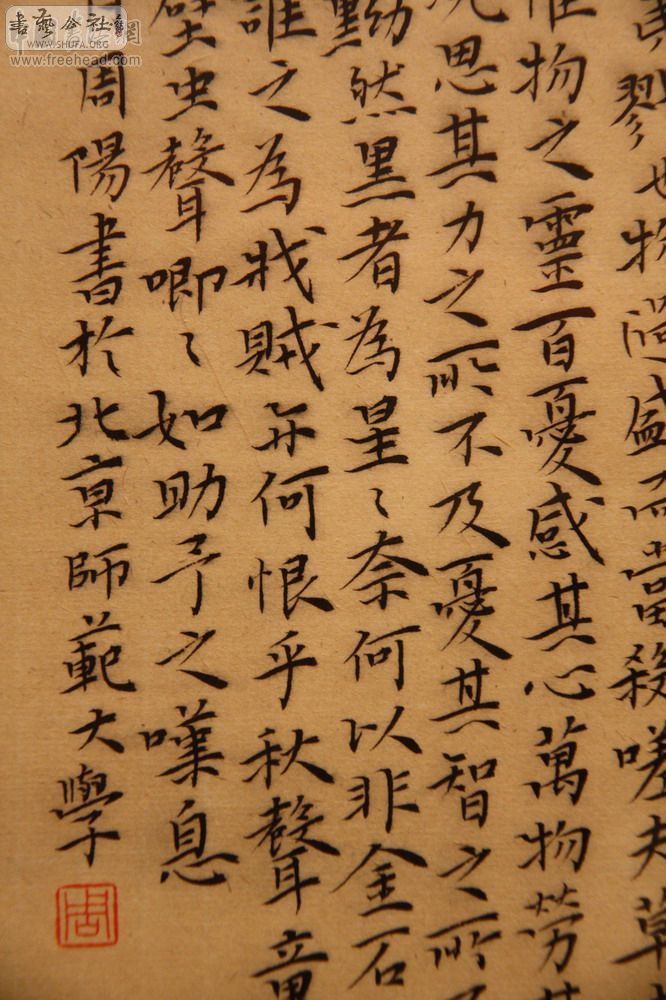 夷戮也物過盛而當殺嗟夫草
惟物之靈百憂感其心萬物勞其
況思其力之所不及憂其智之所不
黝然黑者為星〻奈何以非金石
誰之為戕賊亦何恨乎秋聲童
壁虫聲唧〻如助予之嘆息
周陽書於北京師範大學
周
書藝公社
WWW.SHUFA.ORG
www.freehead.com